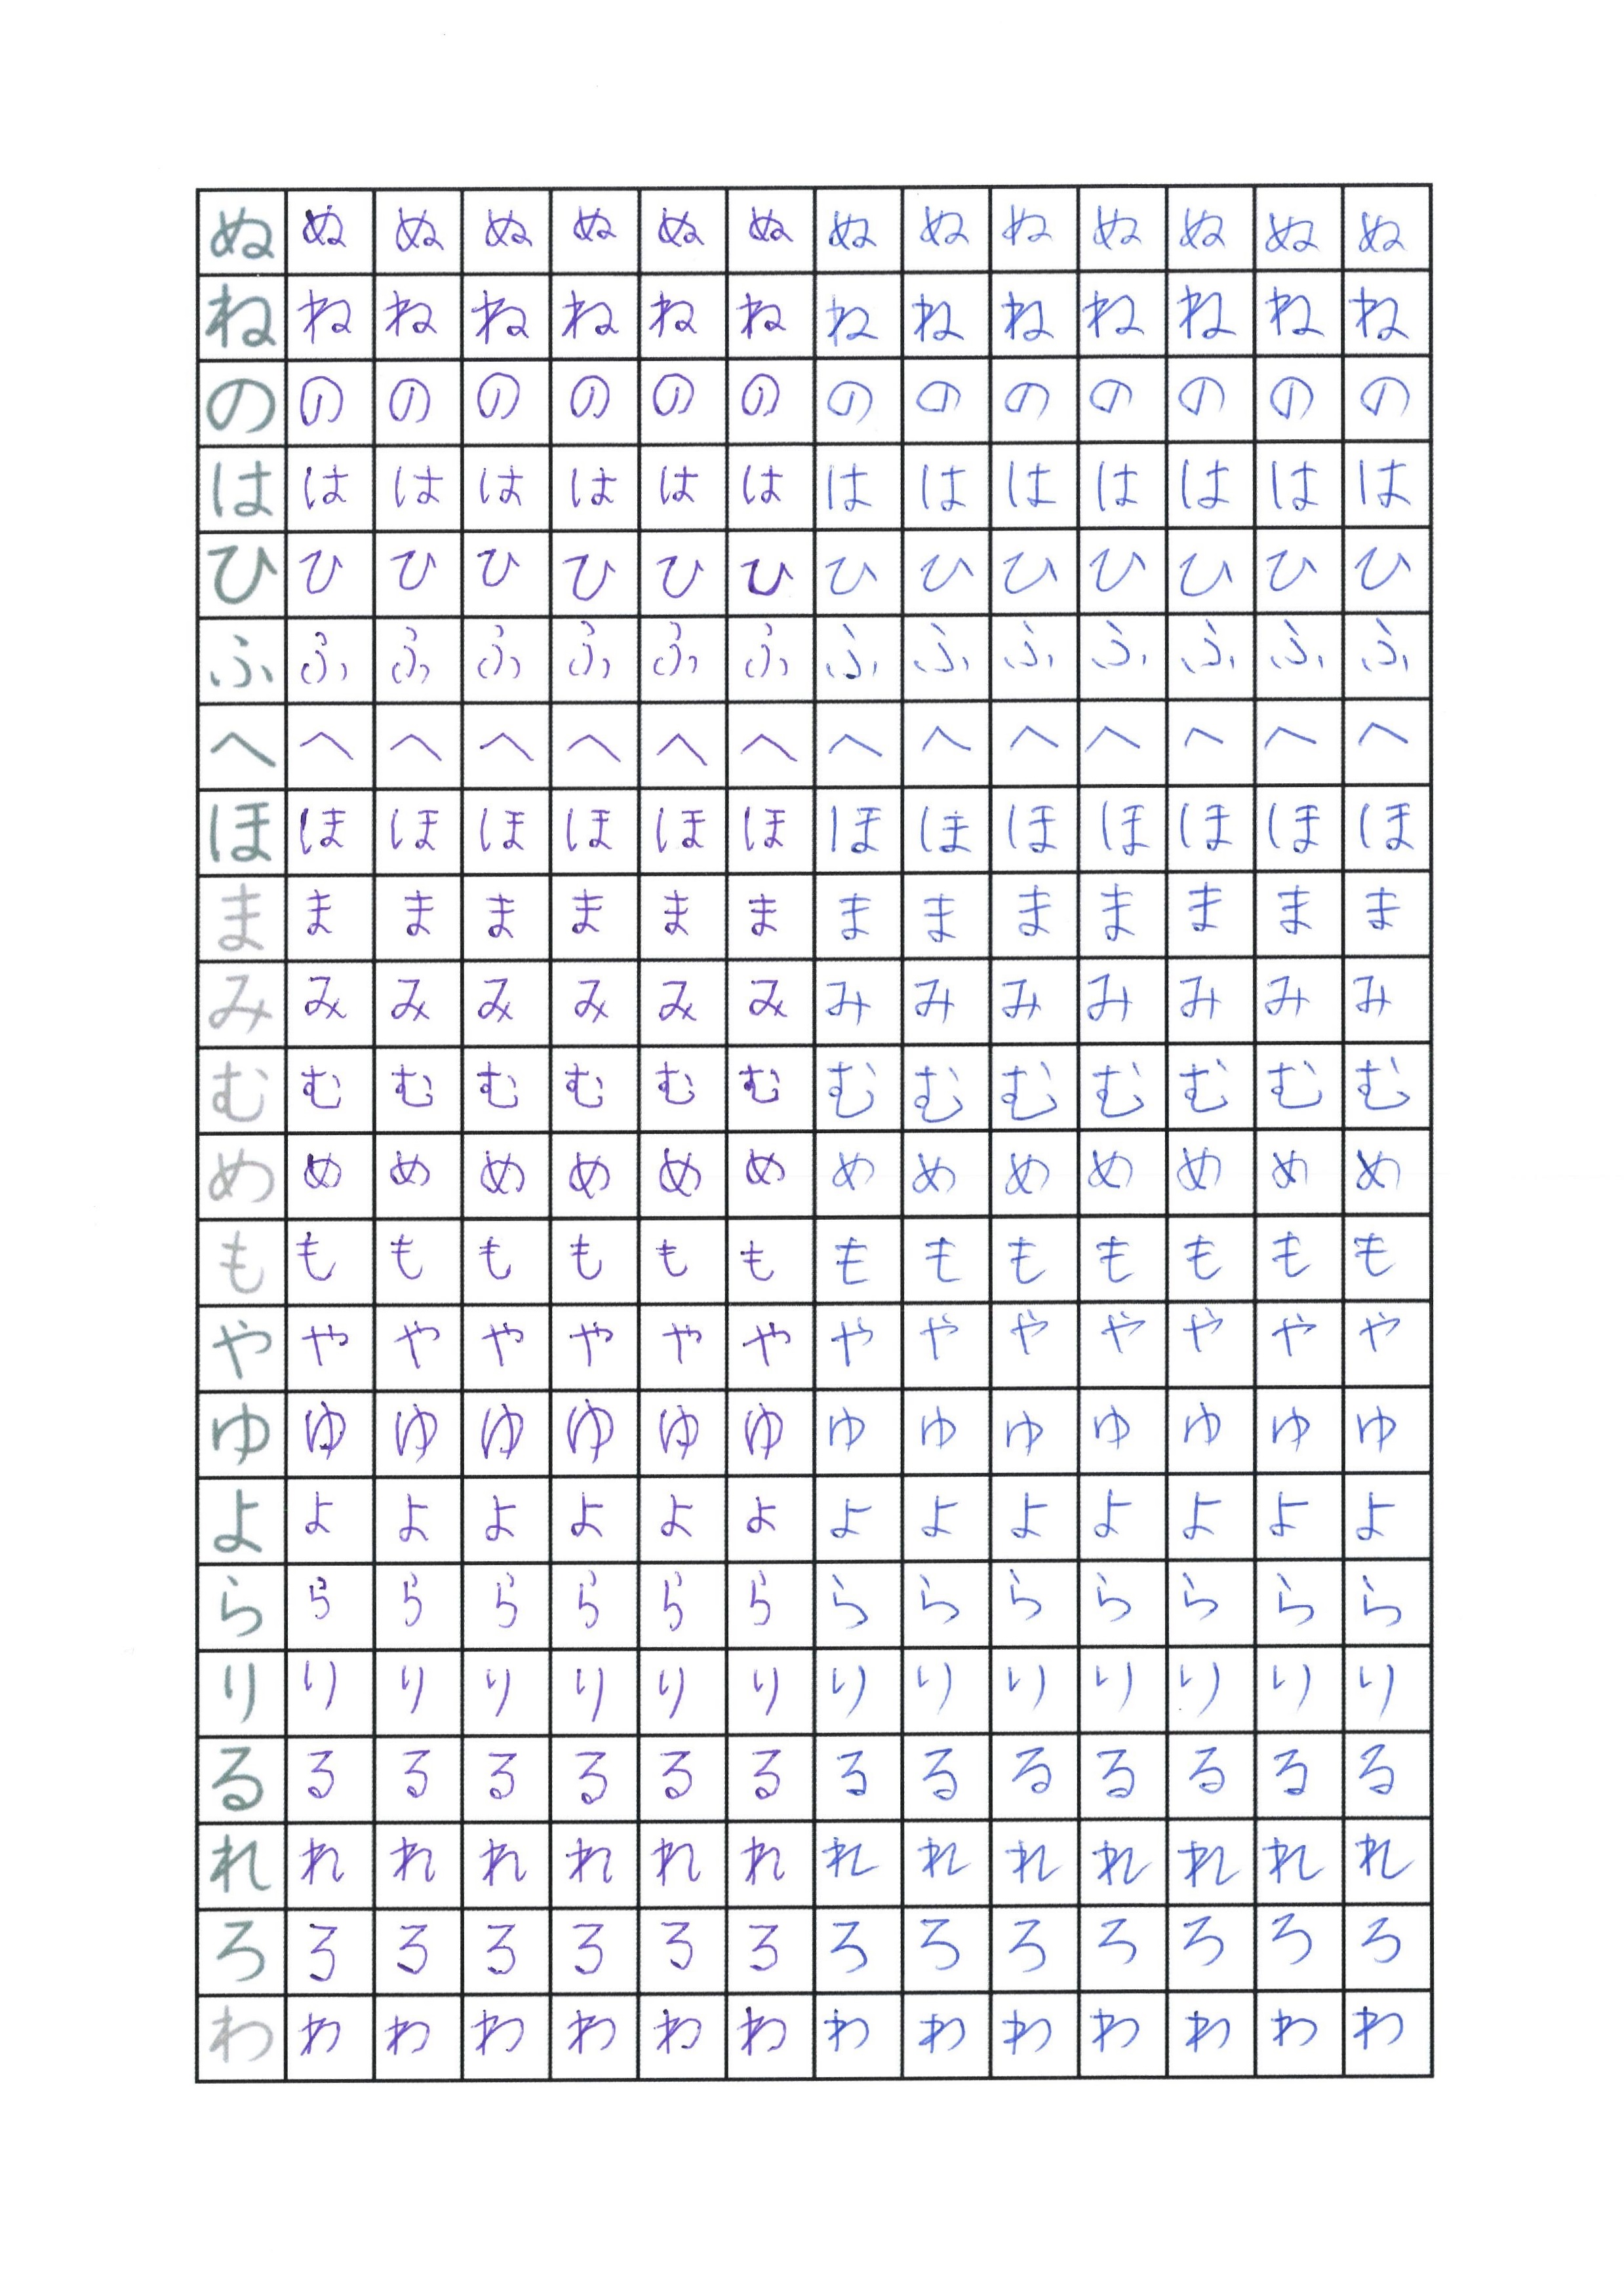 ぬ ぬ ぬ ぬ ぬ ぬ ぬ ぬ ぬ ぬ ぬ ぬ ぬ ぬ
ね ね ね ね ね ね ね ね ね ね ね ね ね ね
の の の の の の の の の の の の の の
は は は は は は は は は は は は は は
ひ ひ ひ ひ ひ ひ ひ ひ ひ ひ ひ ひ ひ ひ
ふ ふ ふ ふ ふ ふ ふ ふ ふ ふ ふ ふ ふ ふ
へ へ へ へ へ へ へ へ へ へ へ へ へ へ
ほ ほ ほ ほ ほ ほ ほ ほ ほ ほ ほ ほ ほ ほ
ま ま ま ま ま ま ま ま ま ま ま ま ま ま
み み み み み み み み み み み み み み
む む む む む む む む む む む む む む
め め め め め め め め め め め め め め
も も も も も も も も も も も も も も
や や や や や や や や や や や や や や
ゆ ゆ ゆ ゆ ゆ ゆ ゆ ゆ ゆ ゆ ゆ ゆ ゆ ゆ
よ よ よ よ よ よ よ よ よ よ よ よ よ よ
ら ら ら ら ら ら ら ら ら ら ら ら ら ら
り り り り り り り り り り り り り り
る る る る る る る る る る る る る る
れ れ れ れ れ れ れ れ れ れ れ れ れ れ
ろ ろ ろ ろ ろ ろ ろ ろ ろ ろ ろ ろ ろ ろ
わ わ わ わ わ わ わ わ わ わ わ わ わ わ